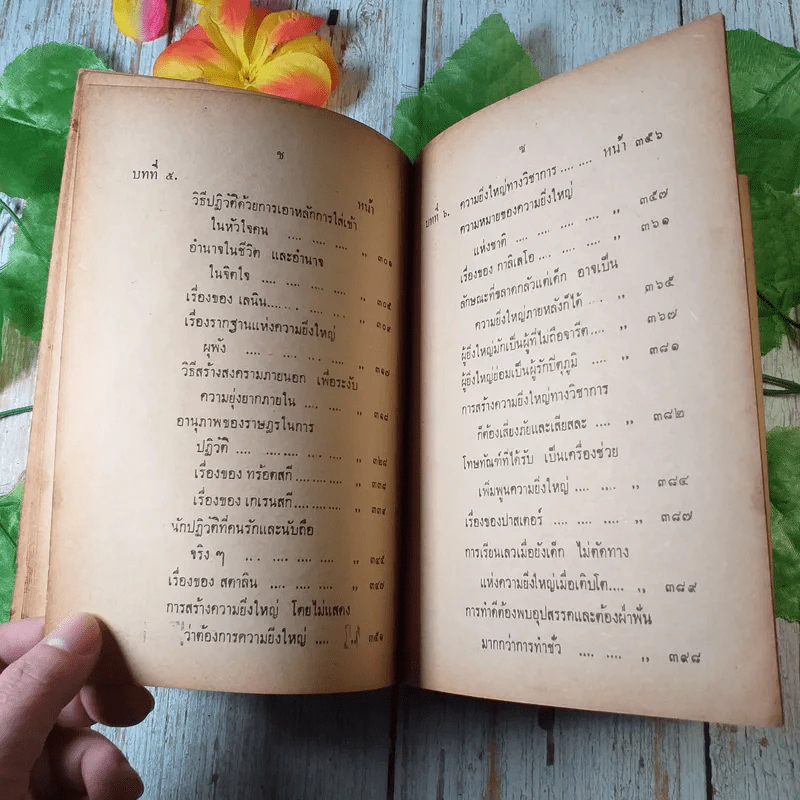 ช
บทที่ ๕.
หน้า
วิธีปฏิวัติด้วยการเอาหลักการใส่เข้า
ในหัวใจคน .... .... .... .... ,, ๓๐๑
อำนาจในชีวิต และอำนาจ
ในจิตใจ .... .... .... .... ,, ๓๐๕
เรื่องของ เลนิน.... .... .... ,, ๓๐๙
เรื่องรากฐานแห่งความยิ่งใหญ่
ผุพัง .... .... .... .... ,, ๓๑๗
วิธีสร้างสงครามภายนอก เพื่อระงับ
ความยุ่งยากภายใน .... .... ,, ๓๑๘
อานุภาพของราษฎรในการ
ปฏิวัติ .... .... .... .... ,, ๓๒๘
เรื่องของ ทร้อตสกี.... .... .... ,, ๓๓๘
เรื่องของ เคเรนสกี.... .... .... ,, ๓๓๙
นักปฏิวัติที่คนรักและนับถือ
จริง ๆ .... .... .... .... ,, ๓๔๕
เรื่องของ สตาลิน .... .... .... ,, ๓๔๗
การสร้างความยิ่งใหญ่ โดยไม่แสดง
ว่าต้องการความยิ่งใหญ่ .... ๓๕๑
ซ
บทที่ ๖. ความยิ่งใหญ่ทางวิชาการ .... .... หน้า ๓๕๖
ความหมายของความยิ่งใหญ่
แห่งชาติ .... .... .... .... ,, ๓๕๗
เรื่องของ กาลิเลโอ .... .... .... ,, ๓๖๑
ลักษณะที่ขลาดกลัวแต่เด็ก อาจเป็น
ความยิ่งใหญ่ภายหลังก็ได้ .... ,, ๓๖๕
ผู้ยิ่งใหญ่มักเป็นผู้ที่ไม่ถือจารีต.... ,, ๓๖๗
ผู้ยิ่งใหญ่ย่อมเป็นผู้รักปิตุภูมิ .... ,, ๓๘๑
การสร้างความยิ่งใหญ่ทางวิชาการ
ก็ต้องเสี่ยงภัยและเสียสละ .... ,, ๓๘๒
โทษทัณฑ์ที่ได้รับ เป็นเครื่องช่วย
เพิ่มพูนความยิ่งใหญ่ .... .... ,, ๓๘๔
เรื่องของปาสเตอร์ .... .... .... ,, ๓๘๗
การเรียนเลวเมื่อยังเด็ก ไม่ตัดทาง
แห่งความยิ่งใหญ่เมื่อเติบโต.... ,, ๓๘๙
การทำดีต้องพบอุปสรรคและต้องฝ่าฟัน
มากกว่าการทำชั่ว .... .... ,, ๓๙๘